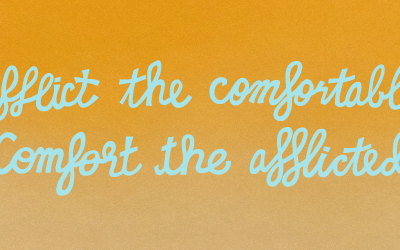 fflict the comfortabl
Comfort the afflicted